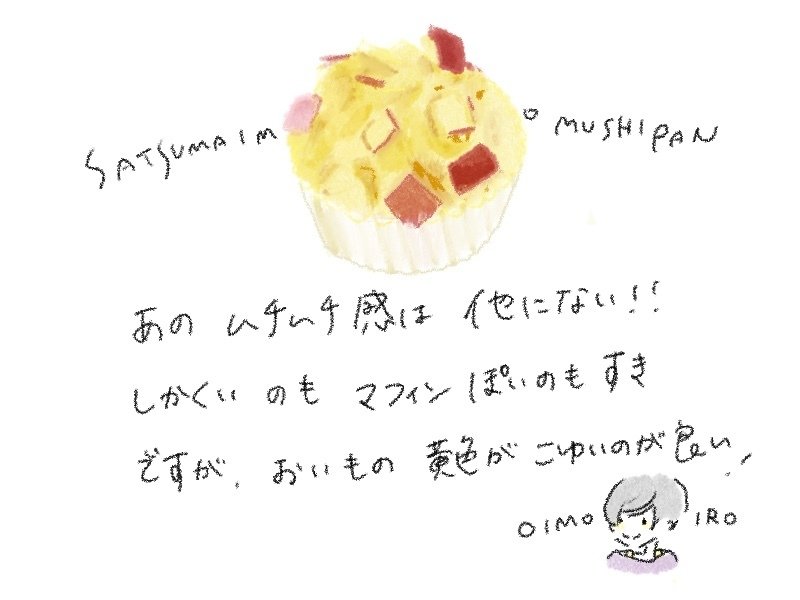 SATSUMAIMO MUSHIPAN
あの ムチムチ感は 他にない!!
しかくい のも マフィンぽいのも すき
ですが、おいもの 黄色が こゆいのが良い!
OIMO IRO